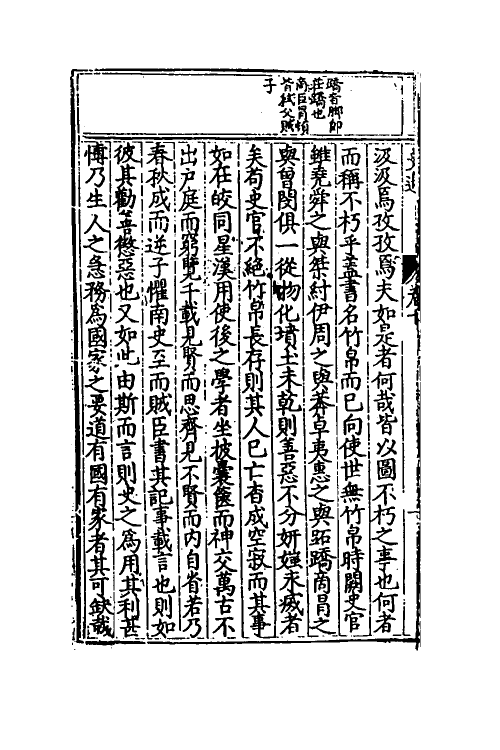 蹻音脚即
莊蹻也
商臣冒頓
皆弑父賊
子
汲汲焉孜孜焉夫如是者何哉皆以圖不朽之事也何者
而稱不朽乎蓋書名竹帛而已向使世無竹帛時闕史官
雖堯舜之與桀紂伊周之與莽卓夷惠之與跖蹻商冒之
與曾閔俱一從物化墳土未乾則善惡不分妍媸永滅者
矣苟史官不絕竹帛長存則其人已亡杳成空寂而其事
如在皎同星漢用使後之學者坐披囊篋而神交萬古不
出戶庭而窮覽千載見賢而思齊見不賢而內自省若乃
春秋成而逆子懼南史至而賊臣書其記事載言也則如
彼其勸善懲惡也又如此由斯而言則史之為用其利甚
博乃生人之急務為國家之要道有國有家者其可缺哉